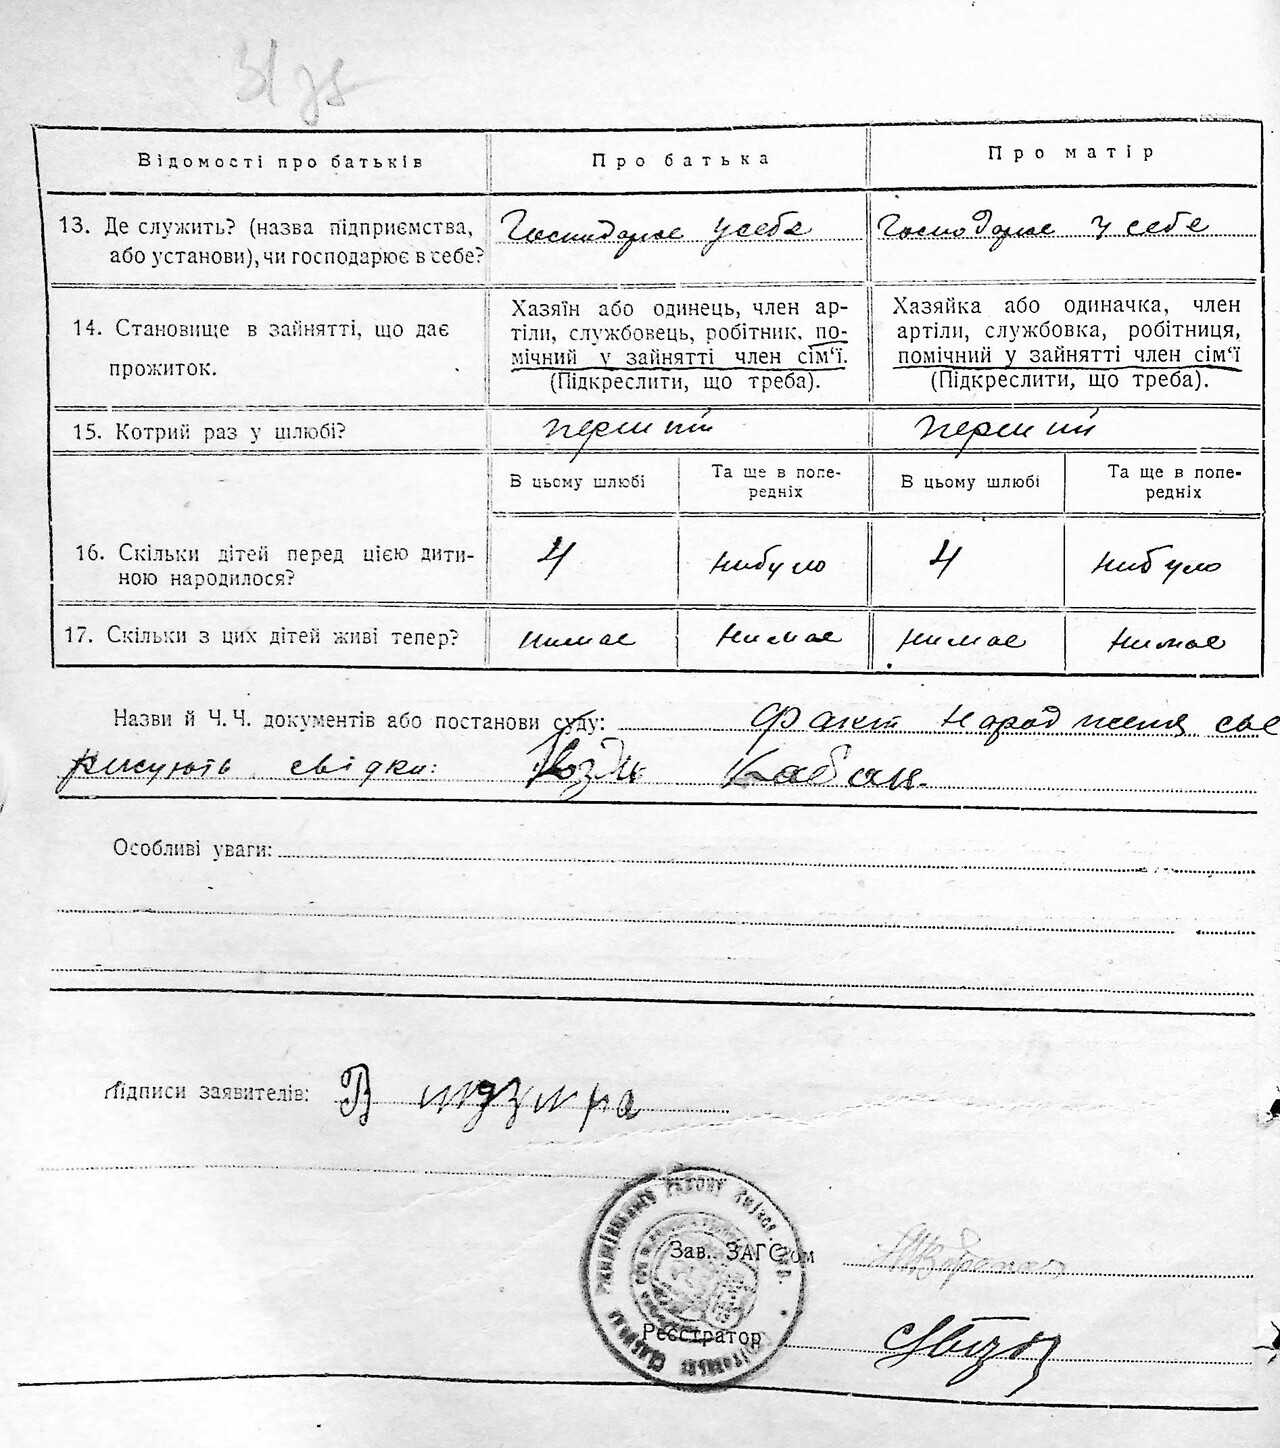 Відомості про батьків
Про батька
Про матір
13. Де служить? (назва підприємства,
або установи), чи господарює в себе?
Господарює у себе
Господарює у себе
14. Становище в зайнятті, що дає
прожиток.
Хазяїн або одинець, член ар-
тіли, службовець, робітник, по-
мічний у зайнятті член сім‘ї.
(Підкреслити, що треба).
Хазяйка або одиначка, член
артіли, службовка, робітниця,
помічний у зайнятті член сім‘ї
(Підкреслити, що треба).
15. Котрий раз у шлюбі?
перший
перший
В цьому шлюбі
Та ще в попе-
редніх
В цьому шлюбі
Та ще в попе-
редніх
16. Скільки дітей перед цією дити-
ною народилося?
4
нибуло
4
нибуло
17. Скільки з цих дітей живі тепер?
нимає
нимає
нимає
нимає
Назви й Ч.Ч. документів або постанови суду: Факт народження
свідки: Кабан.
Особливі уваги:
Підписи заявителів:
Зав. ЗАГС‘ом
Реєстратор